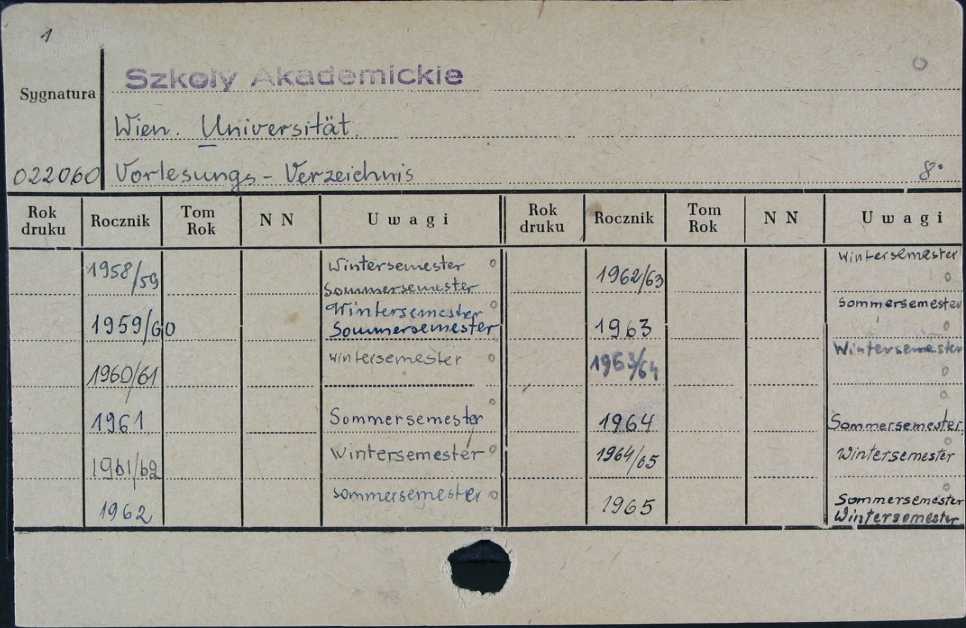 1
Szkoły Akademickie
Sygnatura
Wien. Universität
022060 Vorlesungs-Verzeichnis 8°
Rok druku Rocznik Tom Rok N N Uwagi Rok druku Rocznik Tom Rok N N Uwagi
1958/59 Wintersemester
Sommersemester
1959/60 Wintersemester
Sommersemester
1960/61 Wintersemester
1961 Sommersemester
1961/62 Wintersemester
1962 Sommersemester
1962/63 Wintersemester
1963 Sommersemester
1963/64 Wintersemester
1964 Sommersemester
1964/65 Wintersemester
1965 Sommersemester
Wintersemester